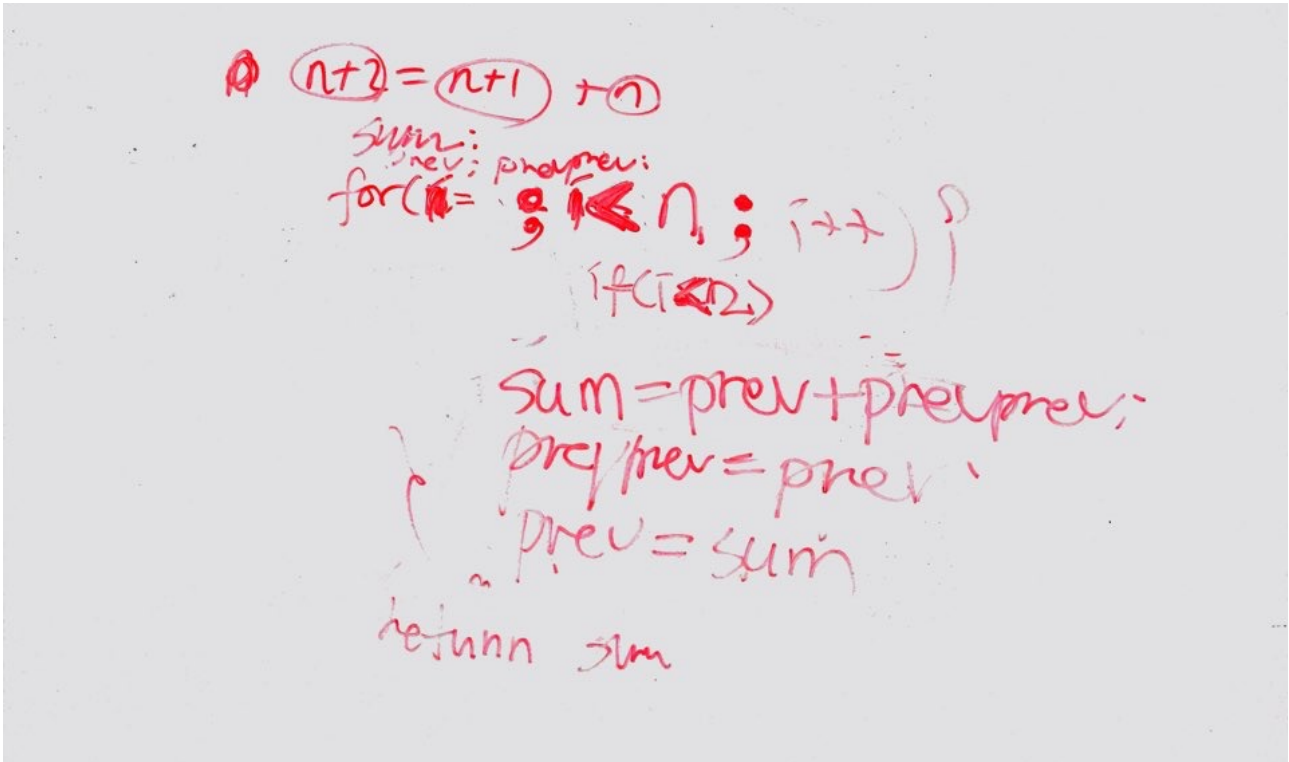 n+2 = n+1 + n
sum;
prev; prevprev;
for(i= ; i< n ; i++) {
if(i<n2)
sum=prev+prevprev;
prevprev=prev;
prev=sum
}
return sum